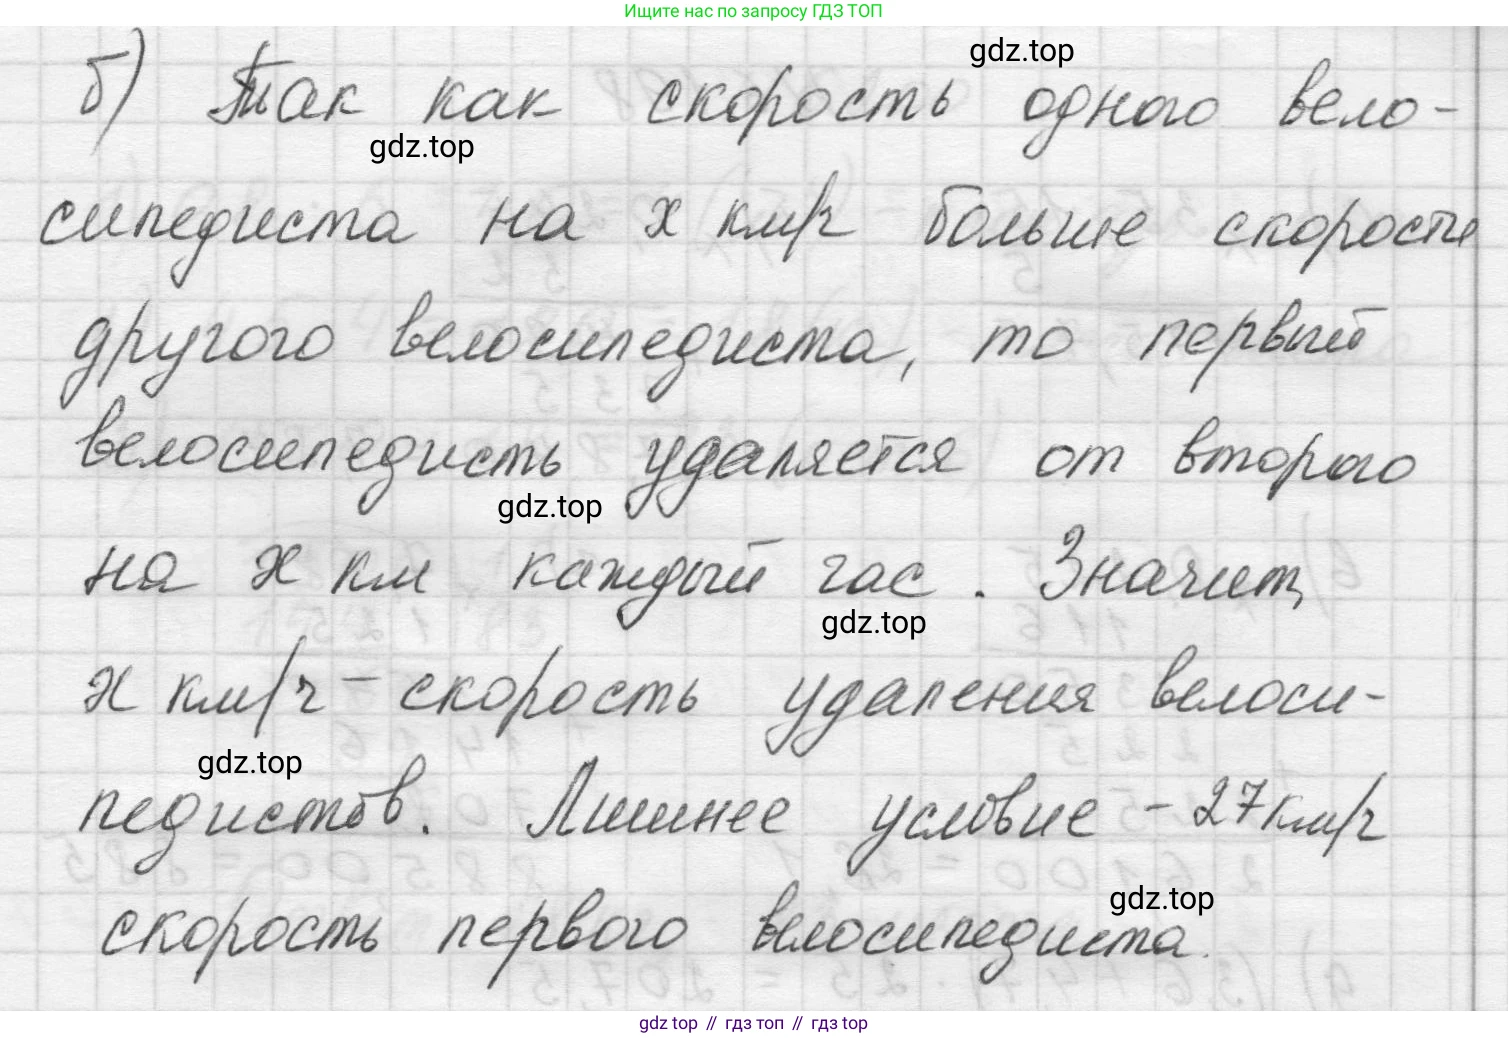 Ищите нас по запросу ГДЗ ТОП
gdz.top
б) Так как скорость одного вело-
gdz.top
сипедиста на х км/ч больше скорости
другого велосипедиста, то первый
велосипедисть удаляется от второго
gdz.top
на х км каждый час. Значит,
gdz.top
х км/ч - скорость удаления велоси-
gdz.top
педистов. Лишнее условие - 27км/ч
gdz.top
скорость первого велосипедиста.
gdz top // гдз топ // гдз top